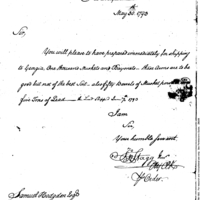 May 30th 1793
Sir,
You will please to have prepared immediately for shipping
to Georgia, One thousand Muskets and Bayonets. These Arms are to be
good but not of the best Sort. also fifty Barrels of Musket powder
five Tons of Lead
I am
Sir,
Your humble servant.
Jno Stagg Junr
Samuel Hodgdon Esqr